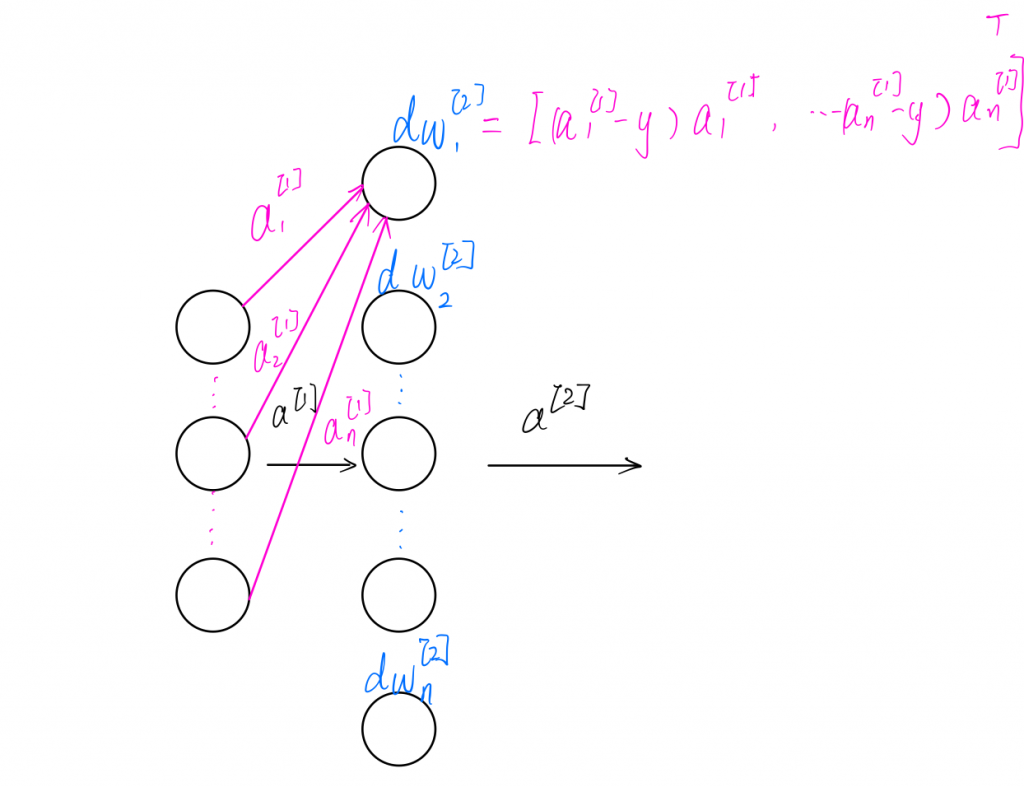 T
dw₁^[2] = [(a₁^[1]-y) a₁^[1], ...(aₙ^[1]-y) aₙ^[1]]
a₁^[1]
dw₂^[2]
a₂^[1]
a^[1]
aₙ^[1]
a^[2]
dwₙ^[2]